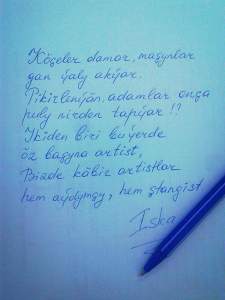 Köçeler damar, maşynlar
gan ýaly akýar.
Pikirlenýän, adamlar onça
puly nirden tapýar !!
Ikiden biri bu ýerde
öz başyna artist,
Bizde käbir artistlar
hem aýdymçy, hem ştangist
Iska